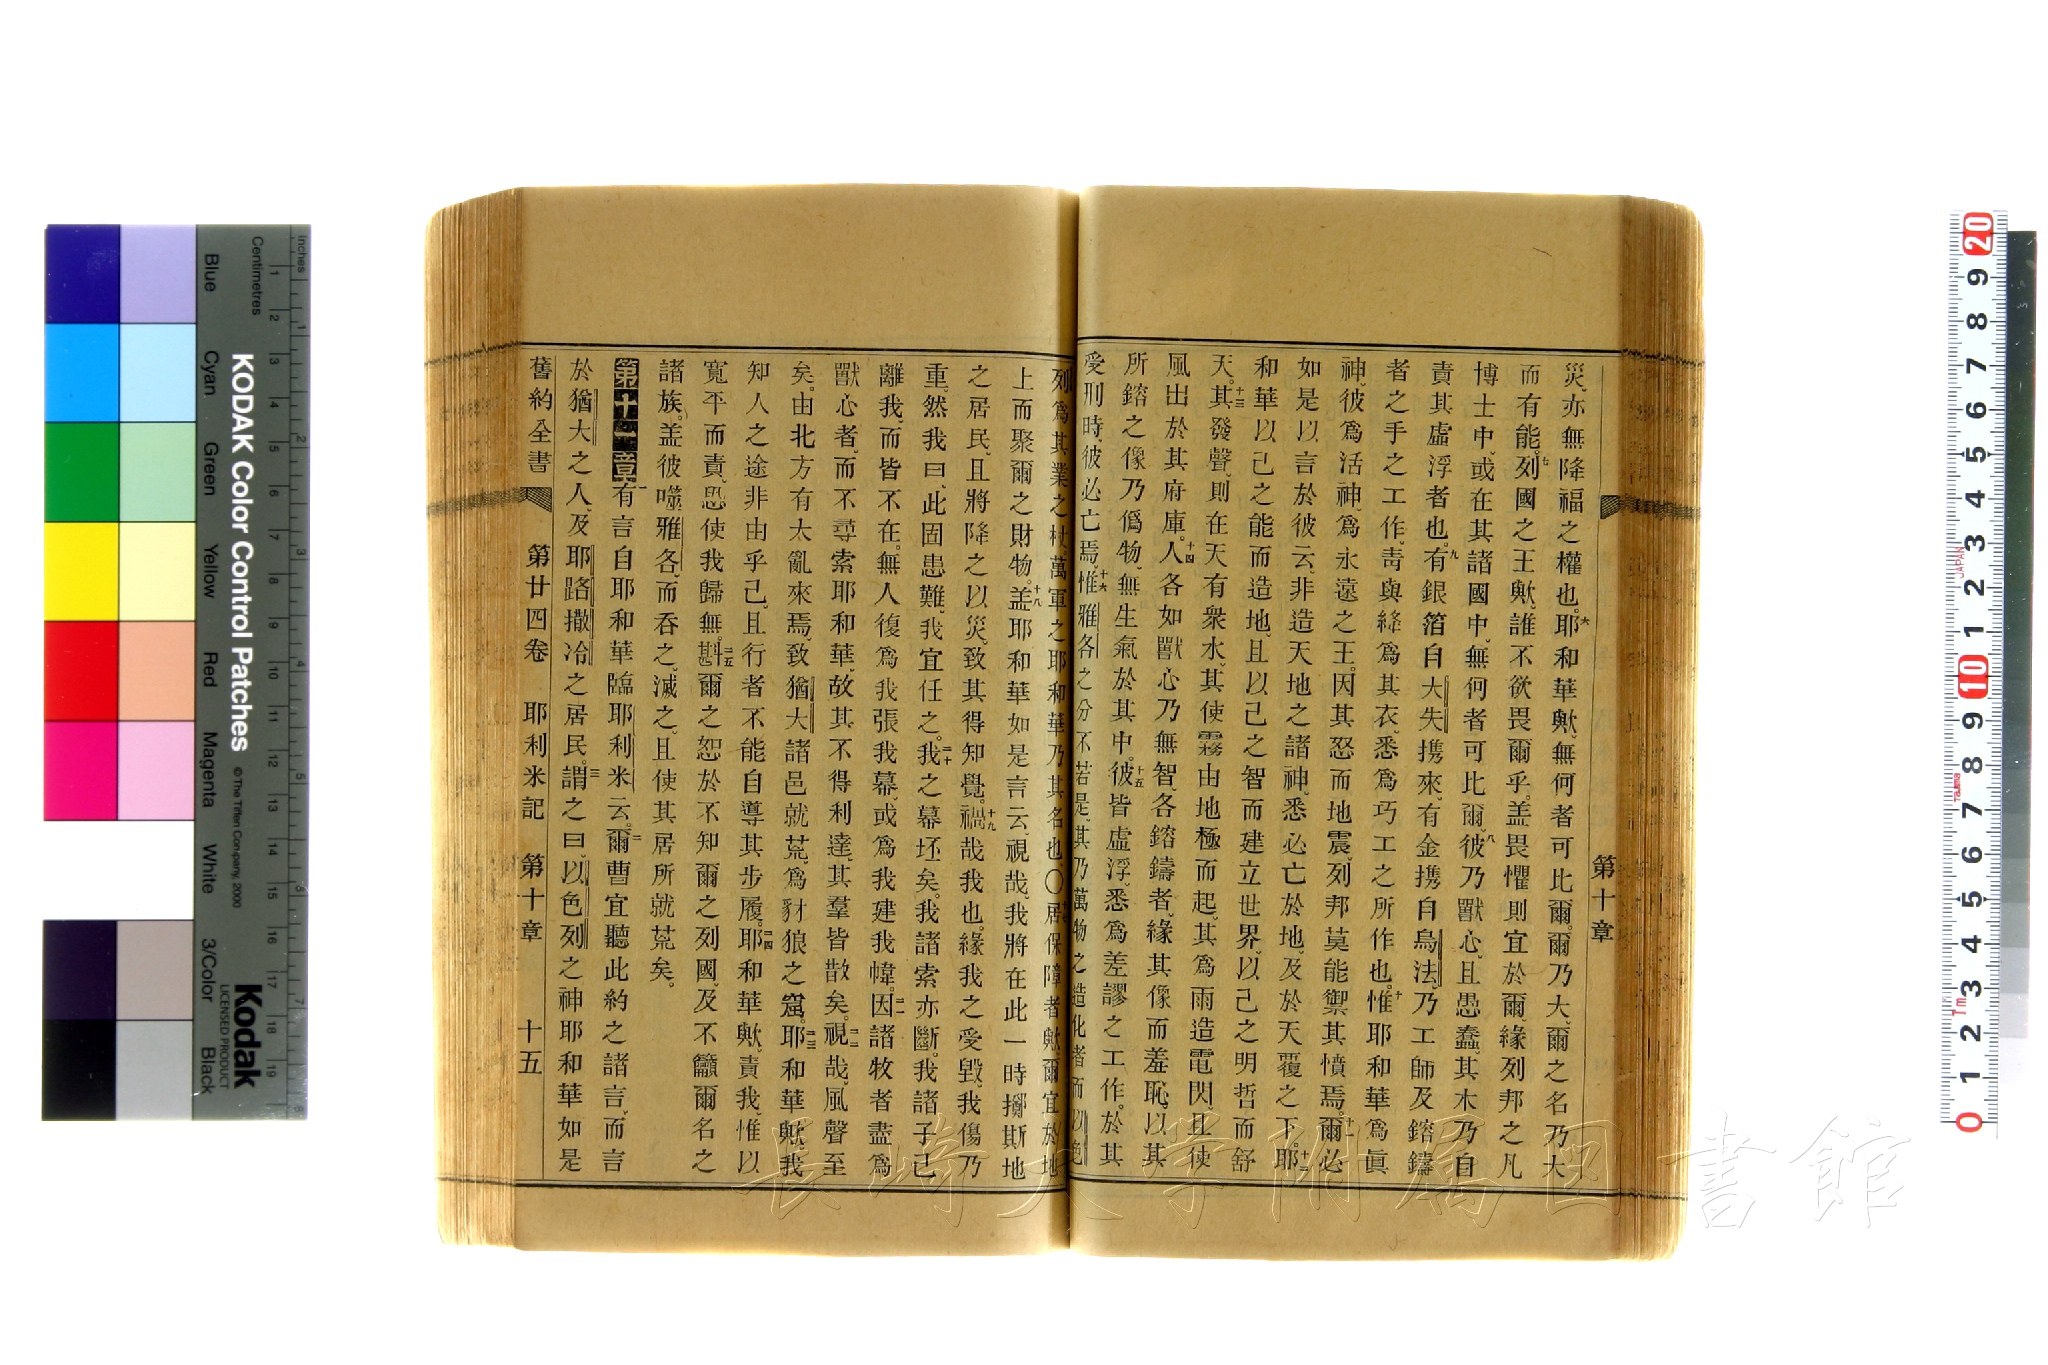 第十章
災、亦無降福之權也。六耶和華歟、無何者可比爾。爾乃大、爾之名乃大
而有能。七列國之王歟、誰不欲畏爾乎。盖畏懼則宜於爾、緣列邦之凡
博士中、或在其諸國中、無何者可比爾。八彼乃獸心、且愚蠢、其木乃自
責其虛浮者也。九有銀箔自大失携來、有金携自烏法、乃工師及鎔鑄
者之手之工作、靑與絳爲其衣、悉爲巧工之所作也。十惟耶和華爲眞
神、彼爲活神、爲永遠之王。因其怒而地震、列邦莫能禦其憤焉。十一爾必
如是以言於彼云、非造天地之諸神、悉必亡於地、及於天覆之下。十二耶
和華以己之能而造地、且以己之智而建立世界、以己之明哲而舒
天。十三其發聲、則在天有衆水、其使霧由地極而起、其爲雨造電閃、且使
風出於其府庫。十四人各如獸心乃無智、各鎔鑄者、緣其像而羞恥、以其
所鎔之像乃僞物、無生氣於其中。十五彼皆虛浮、悉爲差謬之工作。於其
受刑時、彼必亡焉。十六惟雅各之分不若是、其乃萬物之造化者、而以色
列爲其業之杖、萬軍之耶和華乃其名也。〇十七居保障者歟、爾宜於地
上而聚爾之財物。十八盖耶和華如是言云、視哉、我將在此一時擲斯地
之居民、且將降之以災、致其得知覺。十九禍哉我也、緣我之受毀、我傷乃
重。然我曰、此固患難、我宜任之。二十我之幕坯矣。我諸索亦斷。我諸子已
離我、而皆不在。無人復爲我張我幕、或爲我建我幃。二一因諸牧者盡爲
獸心者、而不尋索耶和華、故其不得利達、其羣皆散矣。二二視哉、風聲至
矣。由北方有太亂來焉、致猶大諸邑就荒、爲豺狼之窟。二三耶和華歟、我
知人之途非由乎己、且行者不能自導其步履。二四耶和華歟、責我、惟以
寬平而責、恐使我歸無。二五斟爾之恕於不知爾之列國、及不籲爾名之
諸族。盖彼噬雅各、而吞之、滅之、且使其居所就荒矣。
第十一章一有言自耶和華臨耶利米云。二爾曹宜聽此約之諸言、而言
於猶大之人、及耶路撒冷之居民。三謂之曰、以色列之神耶和華如是
舊約全書 第廿四卷 耶利米記 第十章 十五
KODAK Color Control Patches
© The Tiffen Company, 2000
Kodak
LICENSED PRODUCT
Inches
Centimetres
Blue Cyan Green Yellow Red Magenta White 3/Color Black
長崎大学附属図書館
JAPAN